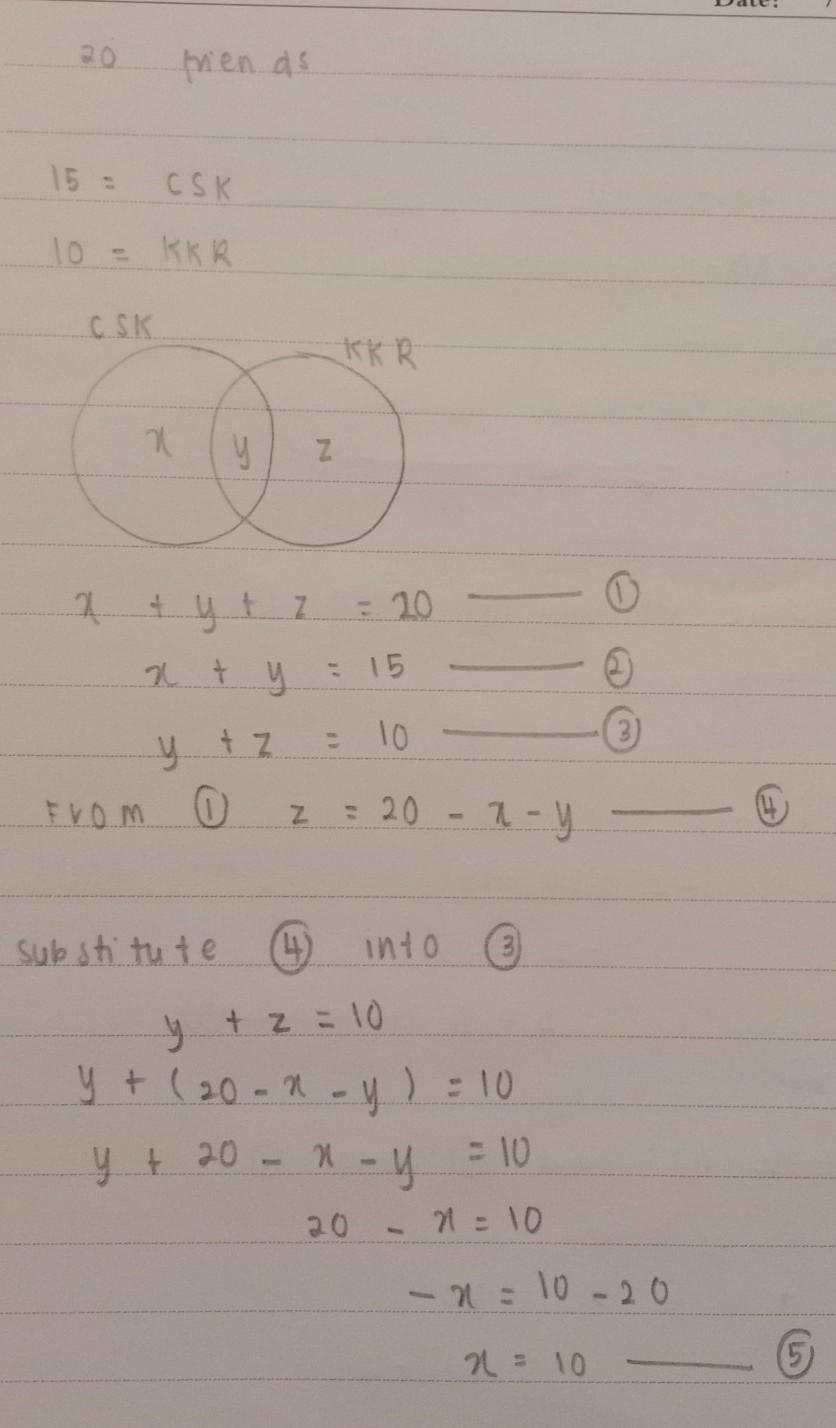 Date:
20 friends
15 = CSK
10 = KKR
CSK
KKR
x y z
x + y + z = 20 —— ①
x + y = 15 —— ②
y + z = 10 —— ③
From ① z = 20 - x - y —— ④
substitute ④ into ③
y + z = 10
y + (20 - x - y) = 10
y + 20 - x - y = 10
20 - x = 10
- x = 10 - 20
x = 10 —— ⑤